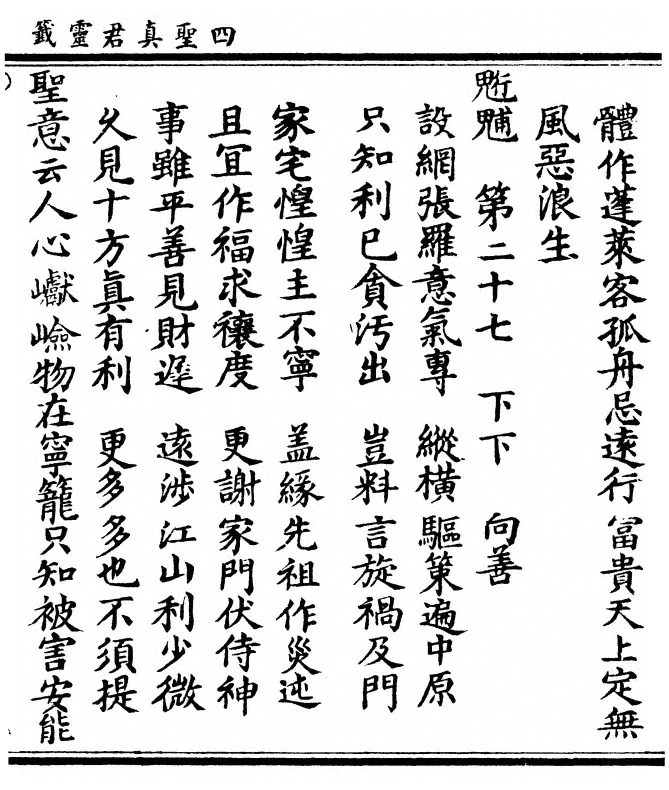 四聖真君靈籤
體作蓬萊客孤舟忌遠行 富貴天上定無
風惡浪生
魒魓 第二十七 下下 向善
設網張羅意氣專 縱橫驅策遍中原
只知利己貪污出 豈料言旋禍及門
家宅惶惶主不寧 盖緣先祖作災迍
且宜作福求禳度 更謝家門伏侍神
事雖平善見財遲 遠涉江山利少微
乆見十方真有利 更多多也不須提
聖意云人心巘嶮物在寧籠只知被害安能